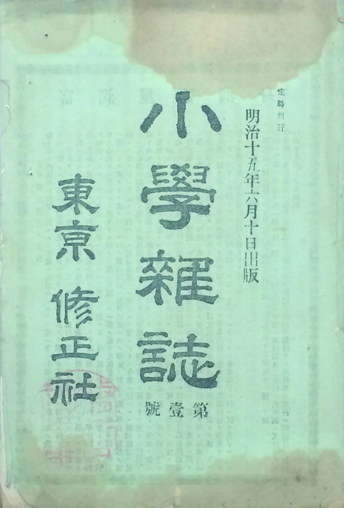 定時刊行
明治十五年六月十日出版
小學雜誌
第壹號
東京 修正社